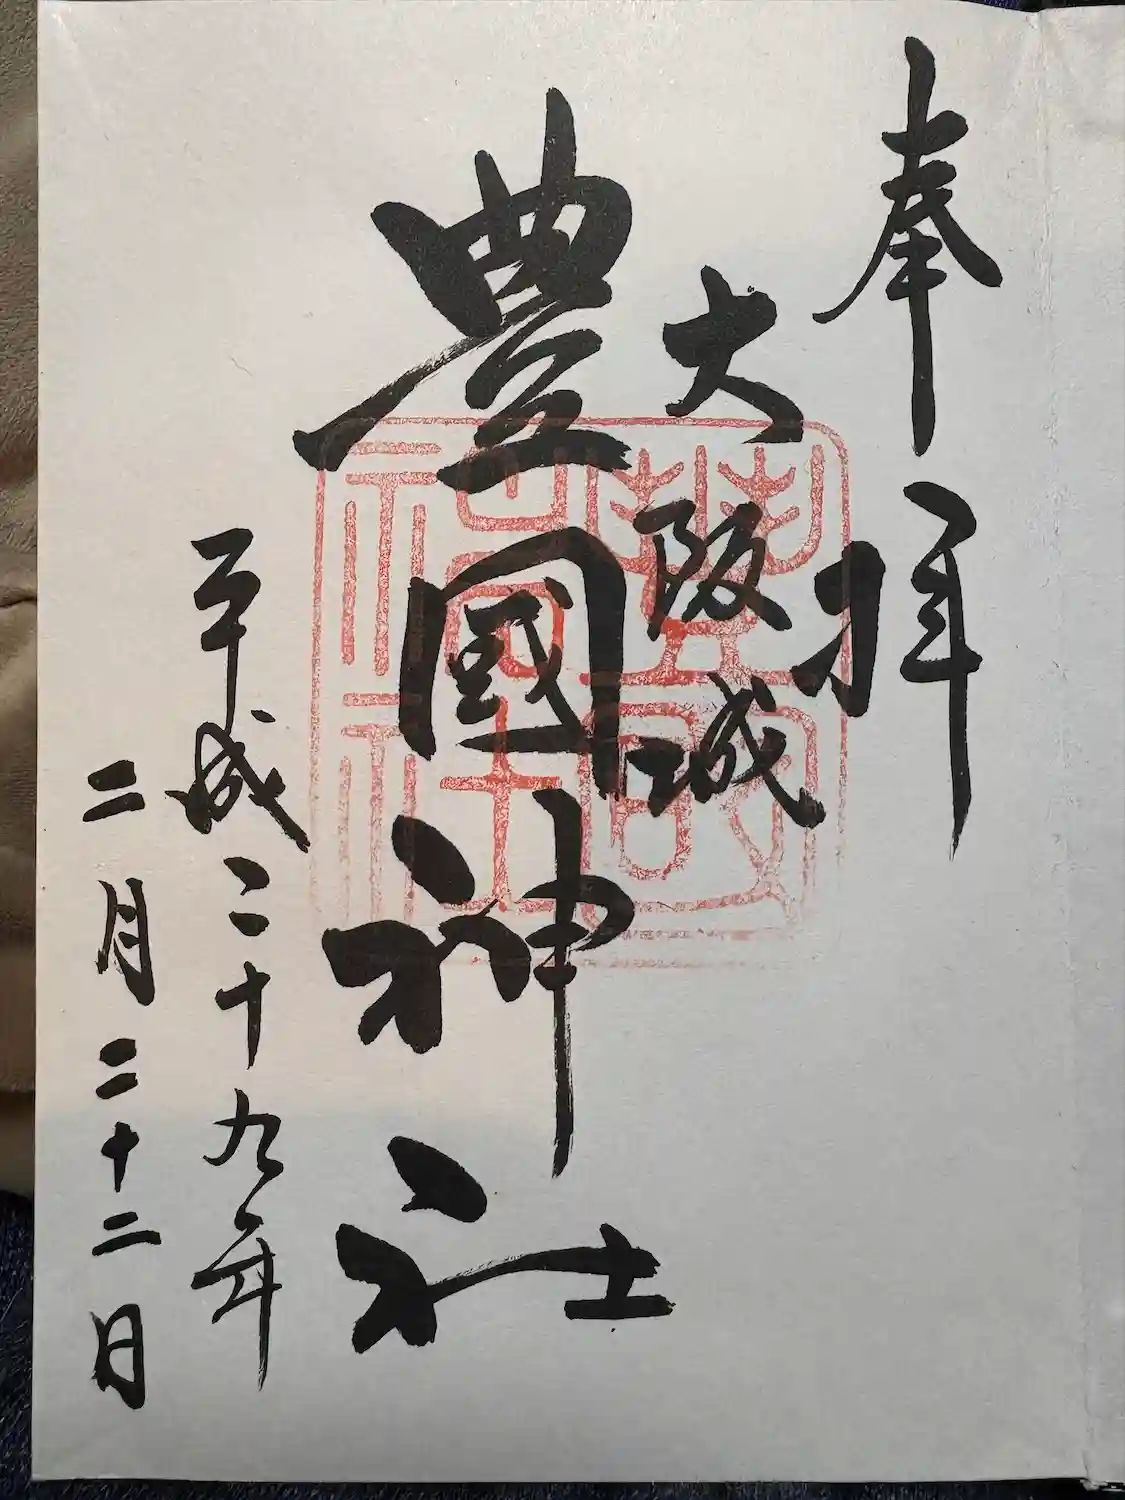 奉拝
大阪城
豊國神社
平成二十九年
二月二十二日
豊國神社